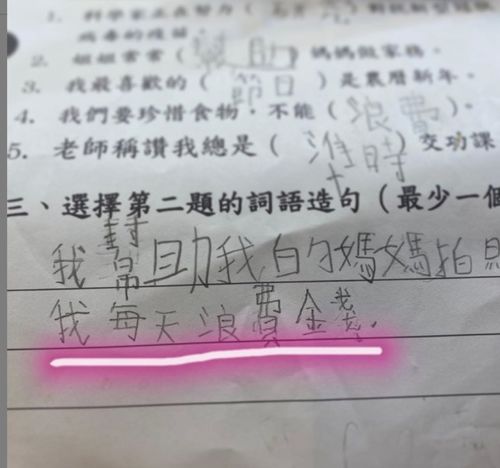 1. 科學家正在努力(
病毒的疫苗。
2. 姐姐常常(幫助)媽媽做家務。
3. 我最喜歡的(節日)是農曆新年。
4. 我們要珍惜食物,不能(浪費)。
5. 老師稱讚我總是(準時)交功課
三、選擇第二題的詞語造句(最少一個
我幫助我的媽媽拍照
我每天浪費金錢。